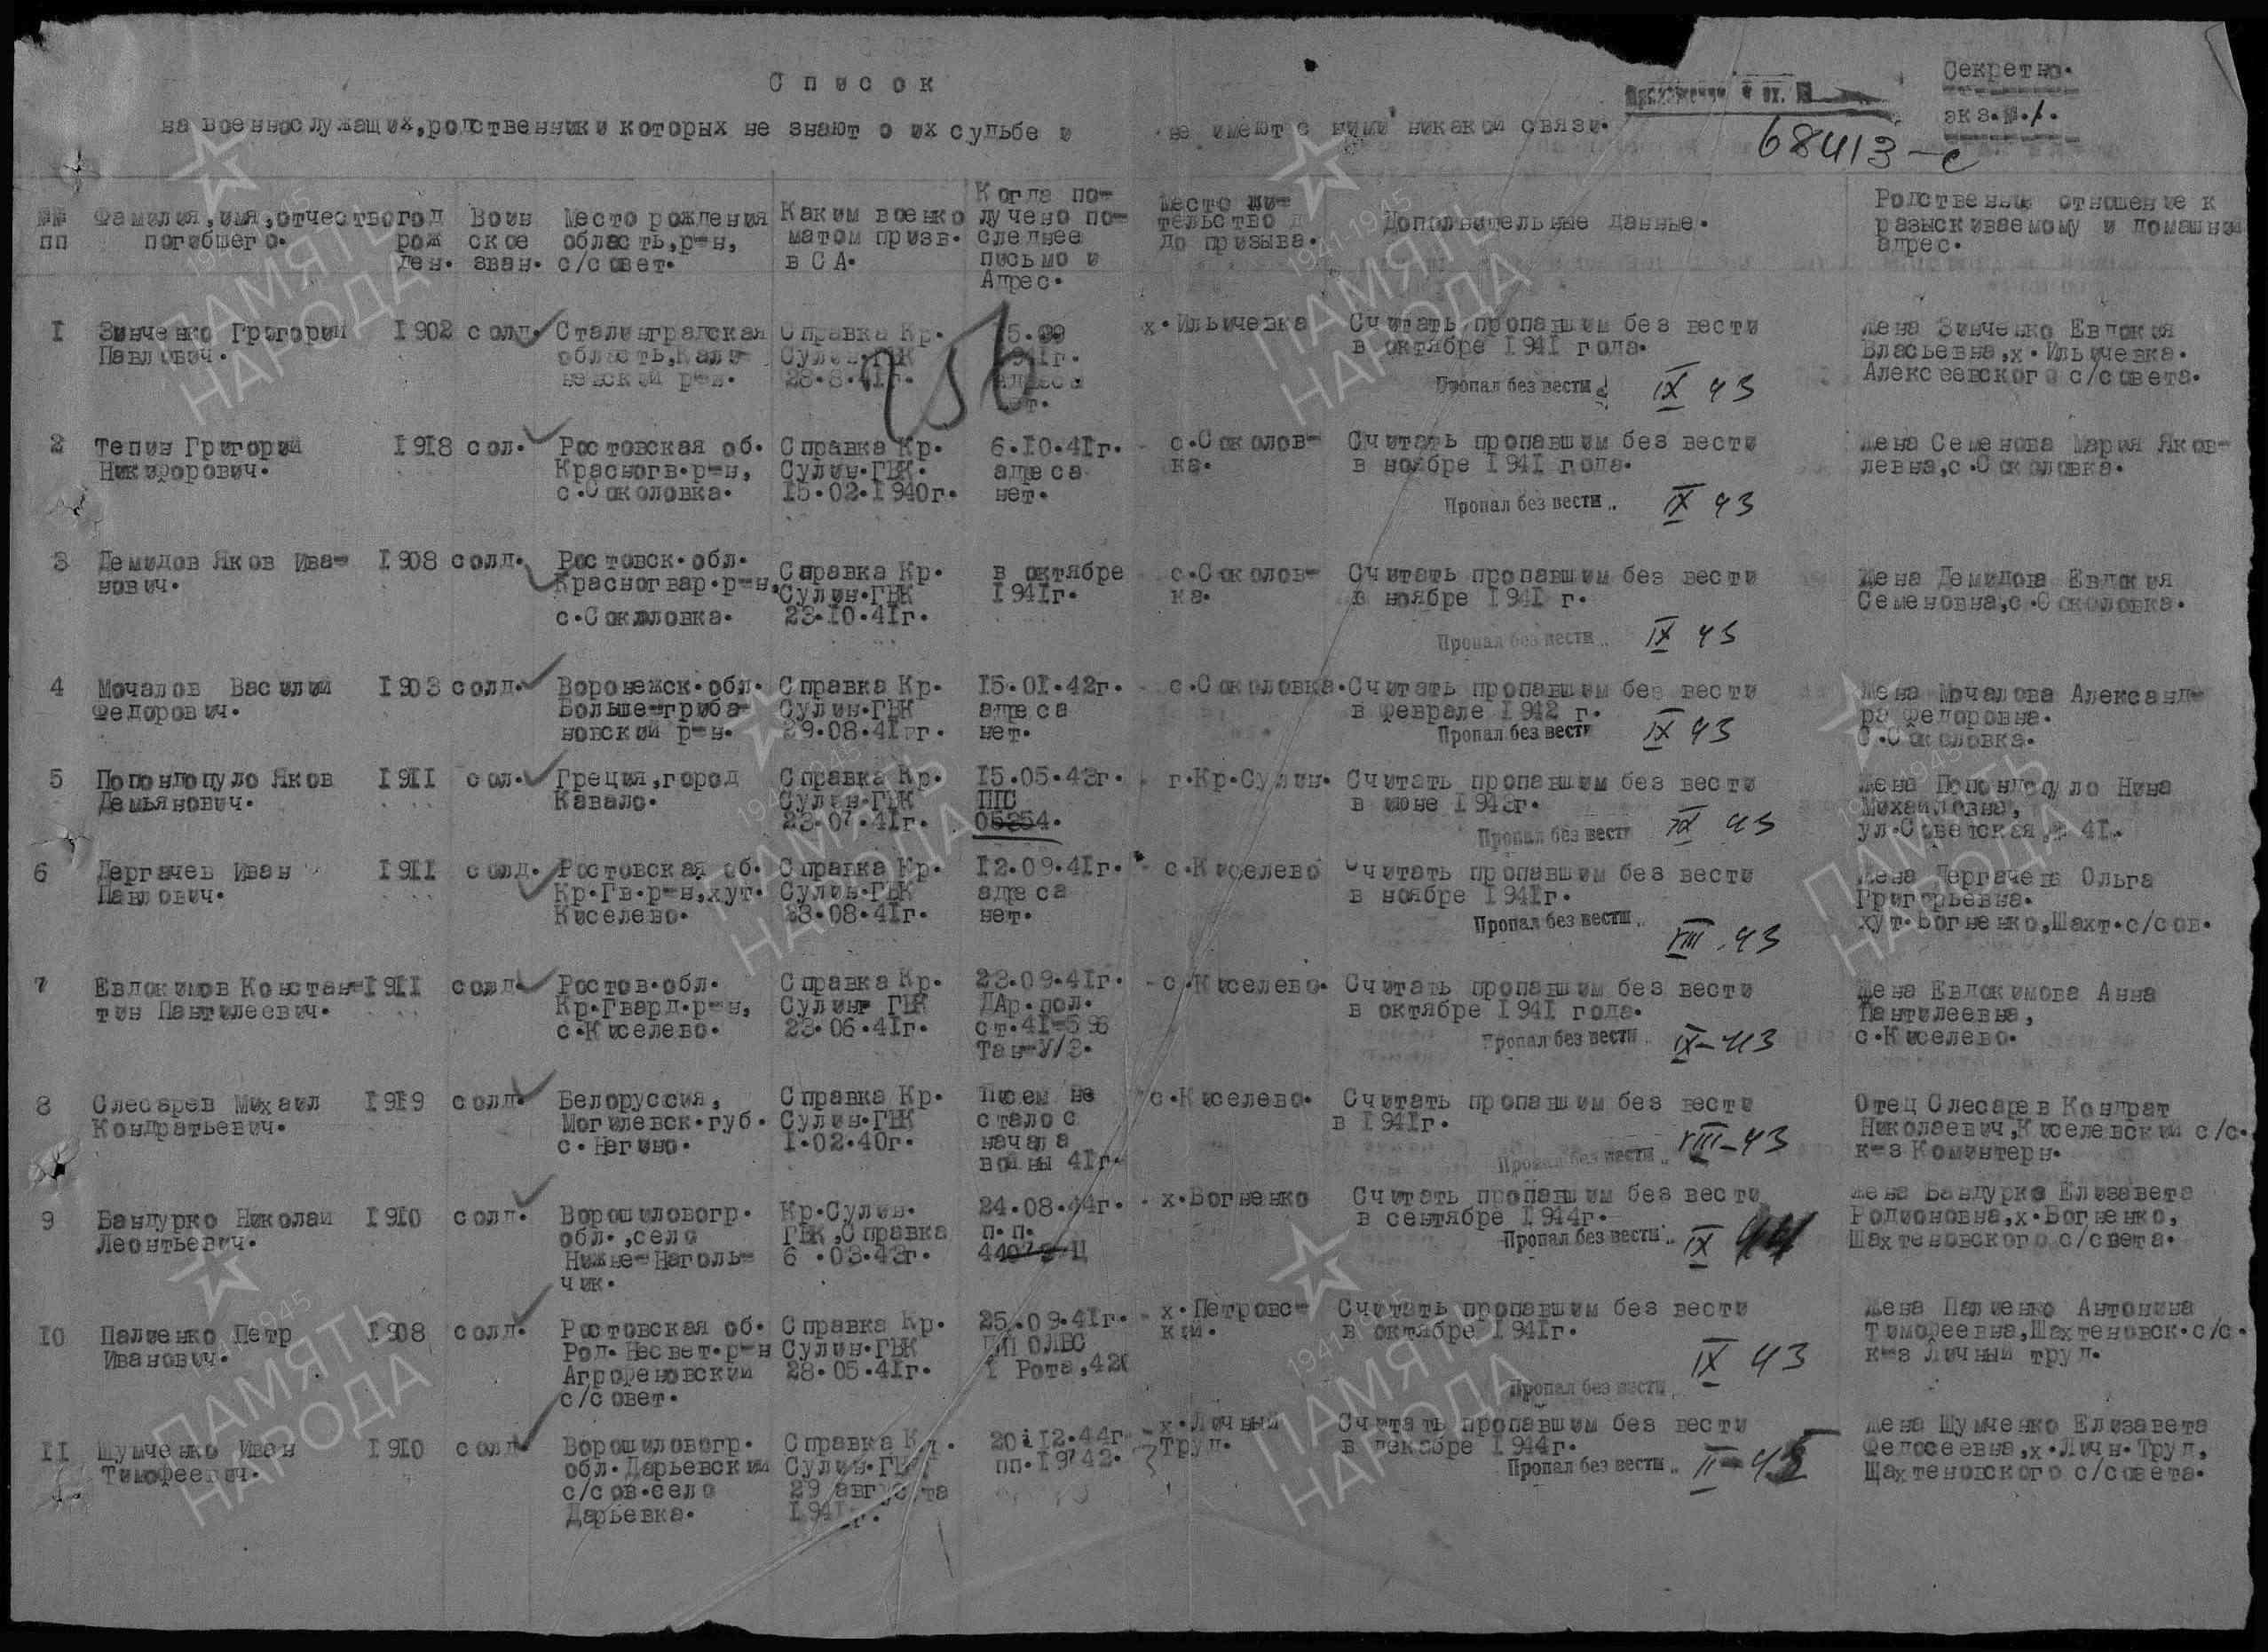 Список
на военнослужащих,родственники которых не знают о их судьбе и не имеют с ними никакой связи.
Секретно.
экз.№.1.
68413-с
№№ пп
Фамилия,имя,отчество погибшего.
год рож ден.
Воин ское зван.
Место рождения область,р-н, с/совет.
Каким военко матом призв. в СА.
Когда по- лучено по- следнее письмо и Адрес.
Место жи- тельство д до призыва.
Дополнительные данные.
Родственные отношение к разыскиваемому и домашний адрес.
1 Зинченко Григорий 1902 солд. Сталинградская Справка Кр. х.Ильичевка Считать пропавшим без вести Жена Зинченко Евдокия
Павлович. область,Кала- Сулин.ГВК 1941г. в октябре 1941 года. Власьевна,х.Ильичевка.
28.8.41г. адреса Пропал без вести IX 43 Алексеевского с/совета.
нет.
2 Тепин Григорий 1918 сол. Ростовская об. Справка Кр. 6.10.41г. с.Соколов- Считать пропавшим без вести Жена Семенова Мария Яков-
Никифорович. Красногв.р-н, Сулин.ГВК. адреса ка. в ноябре 1941 года. левна,с.Соколовка.
с.Соколовка. 15.02.1940г. нет. Пропал без вести IX 43
3 Демидов Яков Ива- 1908 солд. Ростовск.обл. Справка Кр. в октябре с.Соколов- Считать пропавшим без вести Жена Демидова Евдокия
нович. Красногвар.р-н, Сулин.ГВК 1941г. ка. в ноябре 1941 г. Семеновна,с.Соколовка.
с.Соколовка. 23.10.41г.
Пропал без вести IX 43
4 Мочалов Василий 1903 солд. Воронежск.обл. Справка Кр. 15.01.42г. с.Соколовка. Считать пропавшим без вести Жена Мочалова Александ-
Федорович. Больше-гриба- Сулин.ГВК адреса в феврале 1942 г. ра Федоровна.
новский р-н. 29.08.41г. нет. Пропал без вести IX 43 С.Соколовка.
5 Попондопуло Яков 1911 сол. Греция,город Справка Кр. 15.05.43г. г.Кр.Сулин. Считать пропавшим без вести Жена Попондопуло Нина
Демьянович. Кавало. Сулин.ГВК ППС в июне 1943г. Михайловна,
23.07.41г. 05254. Пропал без вести IX 43 ул.Советская, 41.
6 Дергачев Иван 1911 солд. Ростовская об. Справка Кр. 12.09.41г. с.Киселево Считать пропавшим без вести Жена Дергачева Ольга
Павлович. Кр.Гв.р-н,хут. Сулин.ГВК адреса в ноябре 1941г. Григорьевна.
Киселево. 23.08.41г. нет. Пропал без вести VIII.43 хут.Богненко,Шахт.с/сов.
7 Евдокимов Констан- 1911 солд. Ростов.обл. Справка Кр. 23.09.41г. с.Киселево. Считать пропавшим без вести Жена Евдокимова Анна
тин Пантилеевич. Кр.Гвард.р-н, Сулин ГВК ДАр.пол. в октябре 1941 года. Пантилеевна,
с.Киселево. 23.06.41г. ст.41-596 Пропал без вести IX-43 с.Киселево.
Тан-У/3.
8 Слесарев Михаил 1919 солд. Белоруссия, Справка Кр. Писем не с.Киселево. Считать пропавшим без вести Отец Слесарев Кондрат
Кондратьевич. Могилевск.губ. Сулин.ГВК стало с в 1941г. Николаевич,Киселевский с/с.
с.Негино. 1.02.40г. начала Пропал без вести VIII-43 к-з Коминтерн.
войны 41г.
9 Бандурко Николай 1910 солд. Ворошиловогр. Кр.Сулин. 24.08.44г. х.Богненко Считать пропавшим без вести Жена Бандурко Елизавета
Леонтьевич. обл.,село ГВК,Справка п.п. в сентябре 1944г. Родионовна,х.Богненко,
Нижне-Наголь- 6 .03.43г. Пропал без вести IX 44 Шахтеновского с/света.
чик.
10 Палиенко Петр 1908 солд. Ростовская об. Справка Кр. 25.09.41г. х.Петровс- Считать пропавшим без вести Жена Палиенко Антонина
Иванович. Род.Несвет.р-н Сулин.ГВК ПП ОЛВС кий. в октябре 1941г. Тимофеевна,Шахтеновск.с/с.
Аграфеновский 28.05.41г. 1 Рота,420 IX 43 к-з Личный труд.
с/совет. Пропал без вести
11 Шумченко Иван 1910 солд. Ворошиловогр. Справка Кр. 20.12.44г х.Личный Считать пропавшим без вести Жена Шумченко Елизавета
Тимофеевич. обл.Дарьевский Сулин.ГВК пп.19742. труд. в декабре 1944г. Федосеевна,х.Личн.Труд,
с/сов.село 29 августа Пропал без вести II-45 Шахтеновского с/совета.
Дарьевка. 1941г.
1941 1945
ПАМЯТЬ
НАРОДА